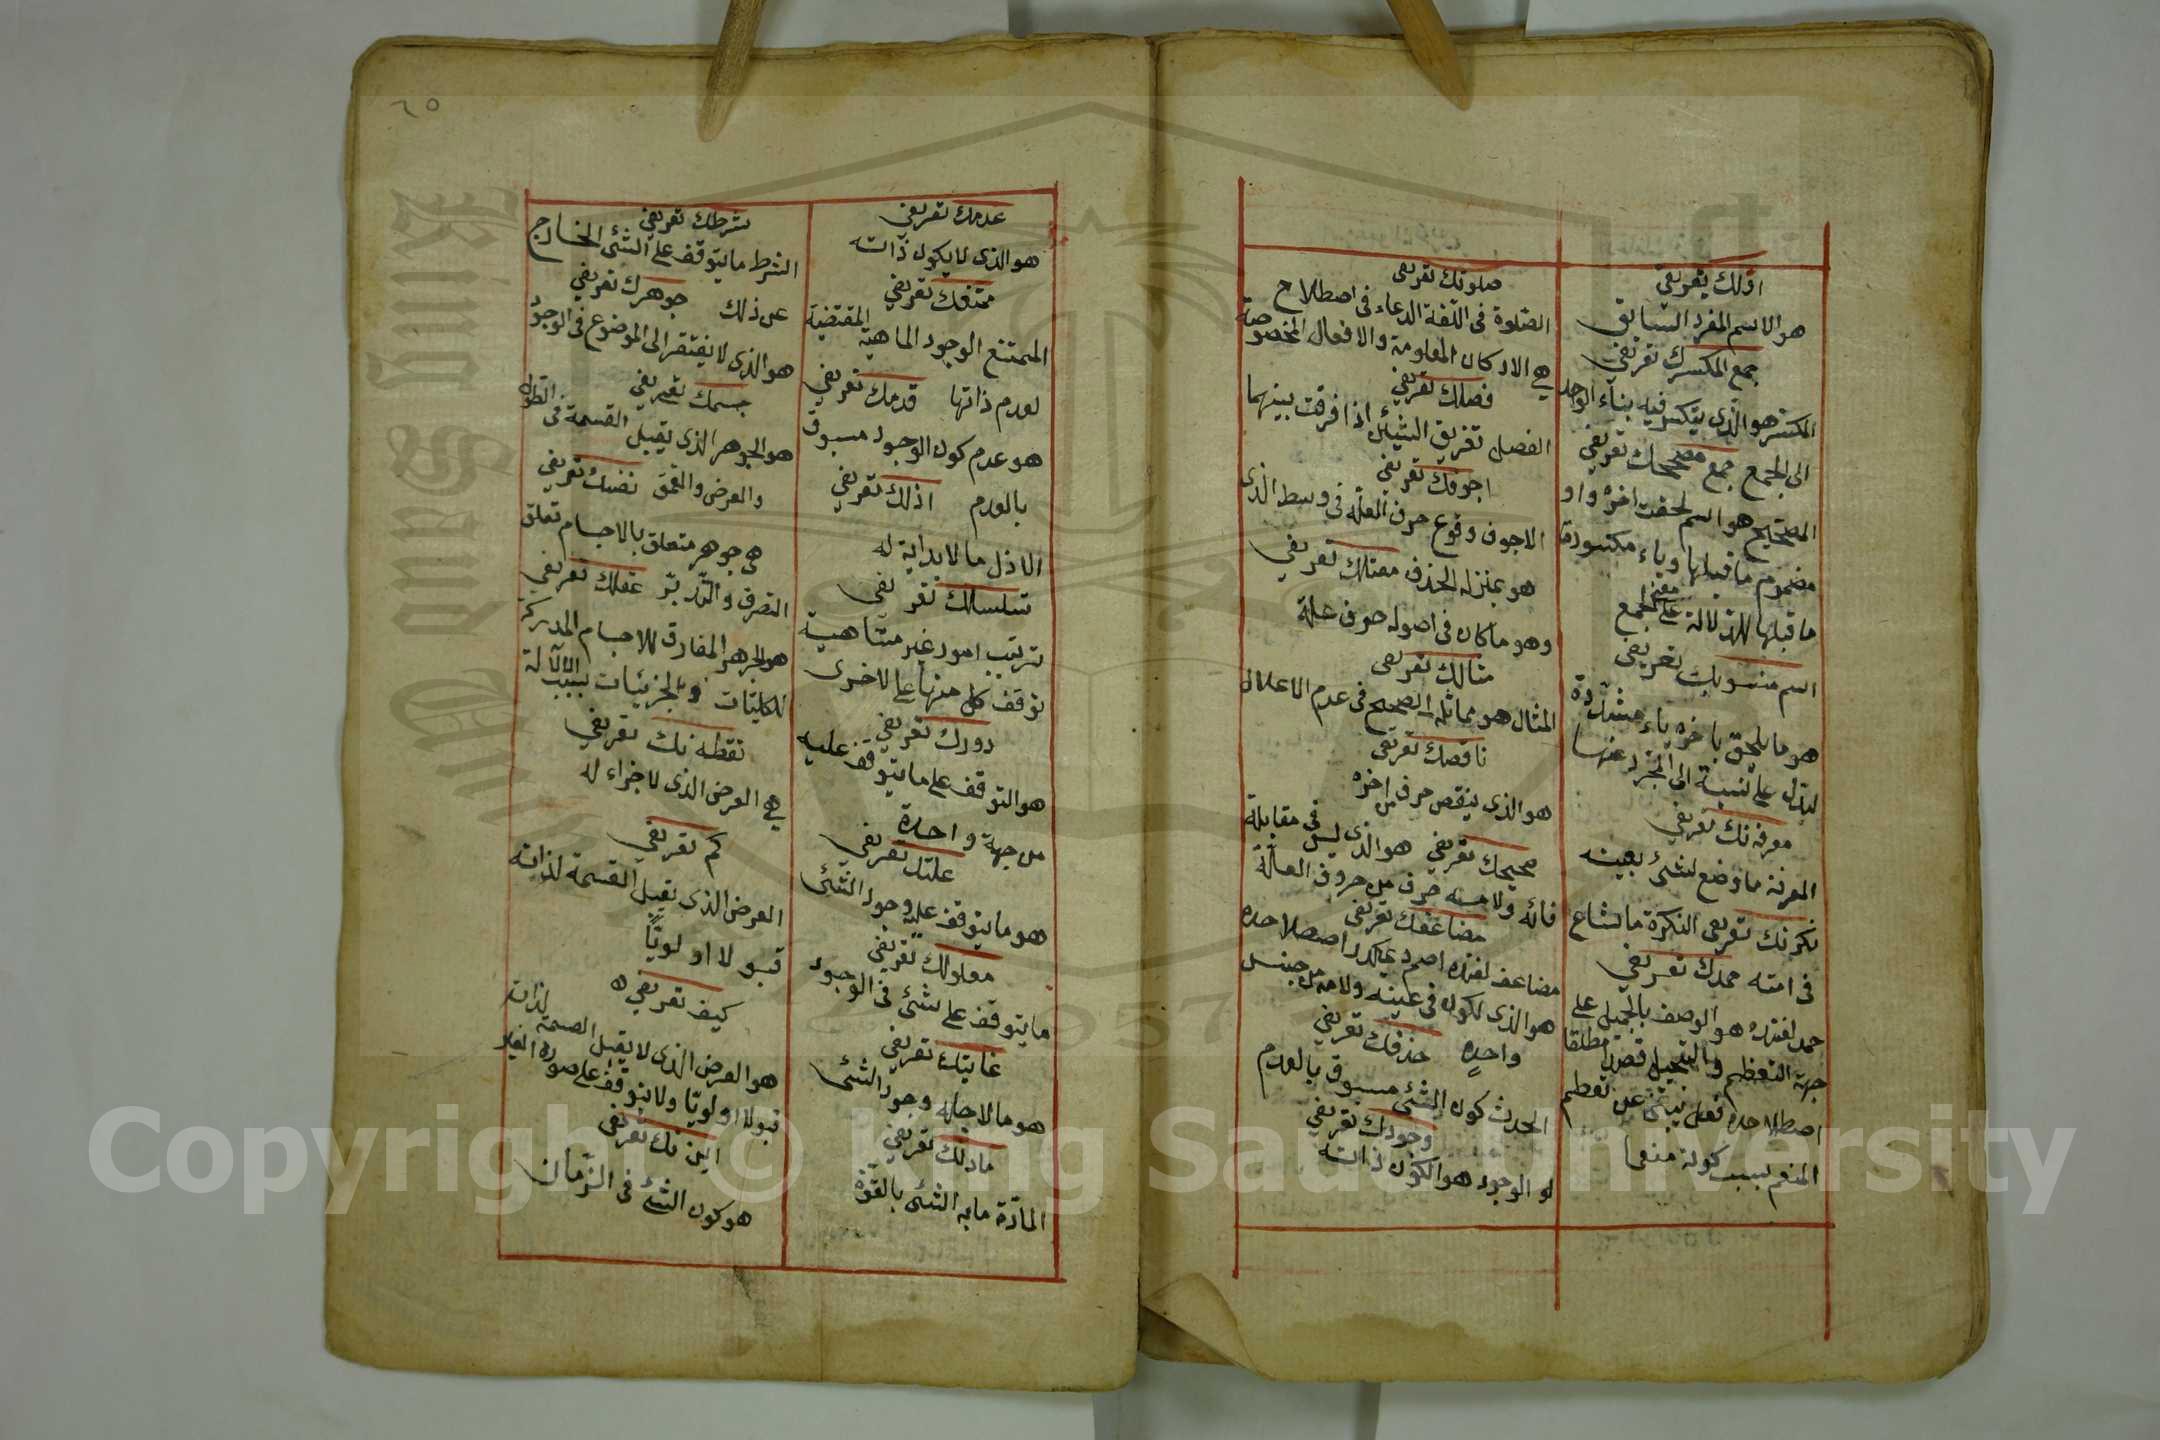 اولك تعريفى
هو الاسم المفرد السابق
جمع المكسرك تعريفى
المكسر هو الذى يتكسر فيه بناء الواحد
الى الجمع جمع مصححك تعريفى
المصحح هو اسم لحقت اخره واو
مضموم ما قبلها وياء مكسورة
ما قبلها للدلالة على معنى الجمع
اسم منسوبك تعريفى
هو ما يلحق باخره ياء مشددة
ليدل على نسبة الى المجرد عنها
معرفه نك تعريفى
المعرفة ما وضع لشئ بعينه
نكره نك تعريفى النكرة ما شاع
فى امته حمدك تعريفى
حمد لغتده هو الوصف بالجميل على
جهة التعظيم والتبجيل قصدا مطلقا
اصطلاحده فعل ينبئ عن تعظيم
المنعم بسبب كونه منعما
صلوتك تعريفى
الصلوة فى اللغة الدعاء فى اصطلاح
هى الاركان المعلومة والافعال المخصوصة
فصلك تعريفى
الفصل تفريق الشيئن اذا فرقت بينهما
اجوفك تعريفى
الاجوف وقوع حرف العلة فى وسط الذى
هو بمنزله الحذف معتلك تعريفى
وهو ما كان فى اصوله حرف علة
مثالك تعريفى
المثال هو مماثلة الصحيح فى عدم الاعلال
ناقصك تعريفى
هو الذى ينقص حرف من اخره
صحيحك تعريفى هو الذى ليس فى مقابلة
فائه ولامه حرف من حروف العلة
مضاعفك تعريفى
مضاعف لغتده اصم ديمكدر اصطلاحده
هو الذى يكون فى عينه ولامه من جنس
واحدٍ حذفك تعريفى
الحدث كون الشئ مسبوق بالعدم
وجودك تعريفى
الوجود هو الكون ذاته
٦٥
عدمك تعريفى
هو الذى لا يكون ذاته
ممتنعك تعريفى
الممتنع الوجود الماهية المقتضية
لعدم ذاتها قدمك تعريفى
هو عدم كون الوجود مسبوق
بالعدم اذلك تعريفى
الاذل ما لا بداية له
تسلسلك تعريفى
ترتيب امور غير متناهية
توقف كل منها على الاخرى
دورك تعريفى
هو التوقف على ما يتوقف عليه
من جهة واحدة
علتك تعريفى
هو ما يتوقف عليه وجود الشئ
معلولك تعريفى
ما يتوقف على شئ فى الوجود
غايتك تعريفى
هو ما لاجله وجود الشئ
مادلك تعريفى
المادّة ما به الشئ بالقوّة
شرطك تعريفى
الشرط ما يتوقف على الشئ الخارج
عن ذلك جوهرك تعريفى
هو الذى لا يفتقر الى الموضوع فى الوجود
جسمك تعريفى
هو الجوهر الذى يقبل القسمة فى الطول
والعرض والعمق نفسك تعريفى
هى جوهر متعلق بالاجسام تعلق
التصرف والتدبّر عقلك تعريفى
هو الجوهر المفارق للاجسام المدركة
للكليّات والجزئيات بسبب الآلة
نقطه نك تعريفى
هى العرض الذى لا جزاء له
كم تعريفى
العرض الذى يقبل القسمة لذاته
قبولا اولويًّا
كيف تعريفى
هو العرض الذى لا يقبل القسمة لذاته
قبولا اولويّا ولا يتوقف على صورة الغير
اين نك تعريفى
هو كون الشئ فى الزّمان
Copyright © King Saud University
King Saud University
1957